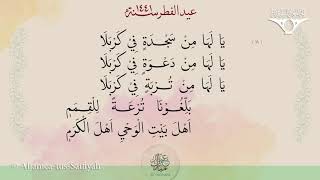 عيد الفطر سنة ١٤٤١هـ
يَا لَهَا مِنْ سَجْدَةٍ فِيْ كَرْبَلَا
يَا لَهَا مِنْ دَعْوَةٍ فِيْ كَرْبَلَا
يَا لَهَا مِنْ تُرْبَةٍ فِيْ كَرْبَلَا
بَلِّغُوْنَا نُزْعَةً لِلْقِمَمِ
اَهْلَ بَيْتِ الْوَحْيِ اَهْلَ الْكَرَمِ
Al-Jamea-tus-Saifiyah